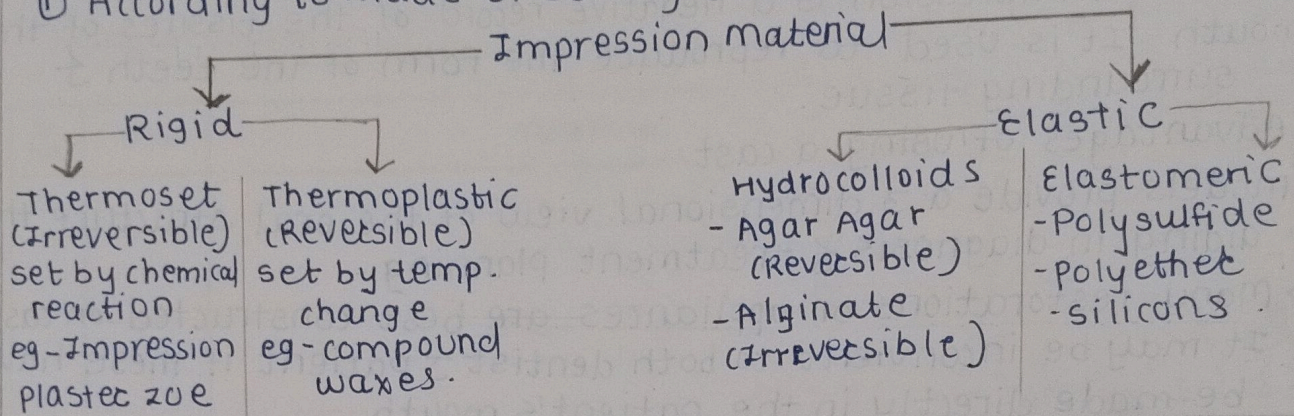 ① According to
Impression material
Rigid
Elastic
Thermoset
(Irreversible)
set by chemical
reaction
eg-Impression
plaster zoe
Thermoplastic
(Reversible)
set by temp.
change
eg-compound
waxes.
Hydrocolloids
- Agar Agar
(Reversible)
- Alginate
(Irreversible)
Elastomeric
-Polysulfide
-polyether
-silicons.